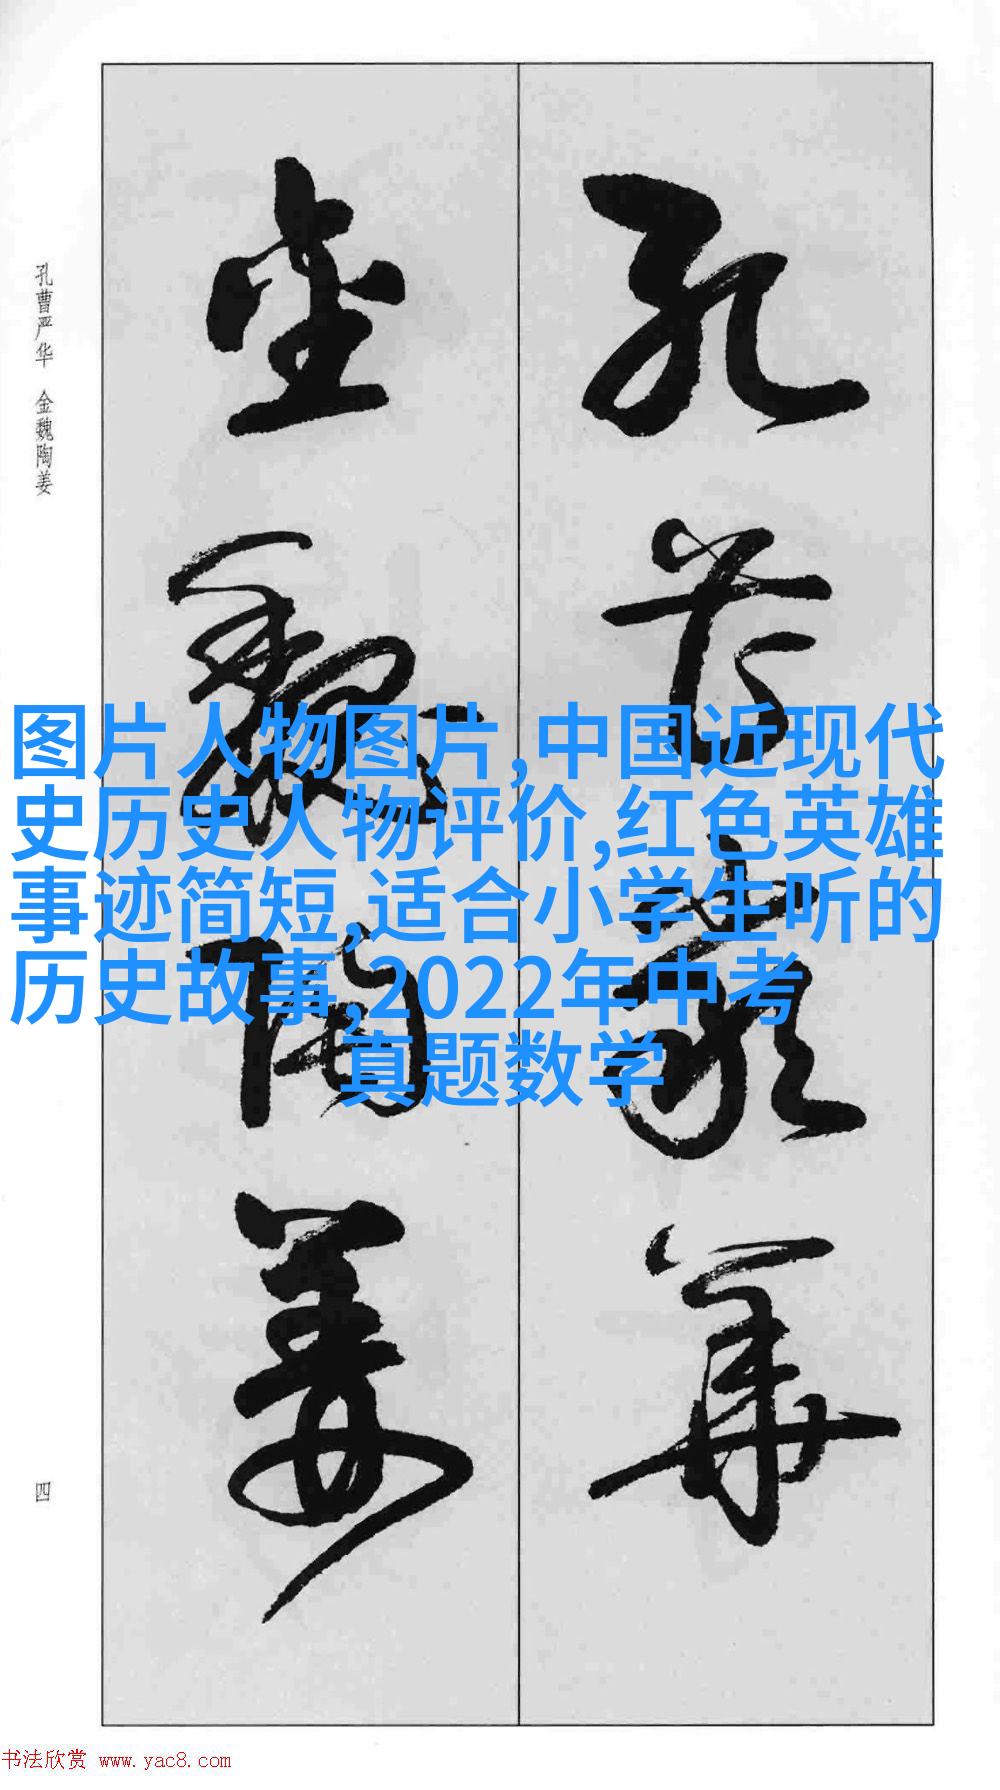 孔曹严华
金魏陶姜
孔曹严华 金魏陶姜
图片人物图片,中国近现代
史历史人物评价,红色英雄
事迹简短,适合小学生听的
历史故事,2022年中考
真题数学
四
书法欣赏 www.yac8.com